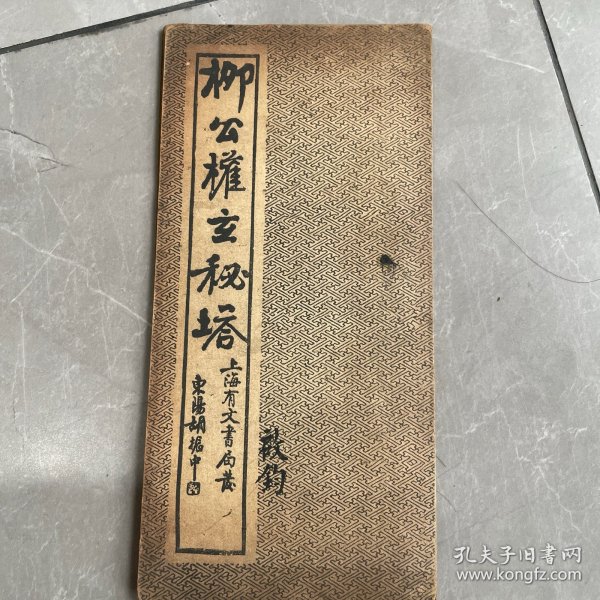 柳公權玄秘塔
上海有文書局發
東陽胡振中
啟鈞
孔夫子旧書网
www.kongfz.com